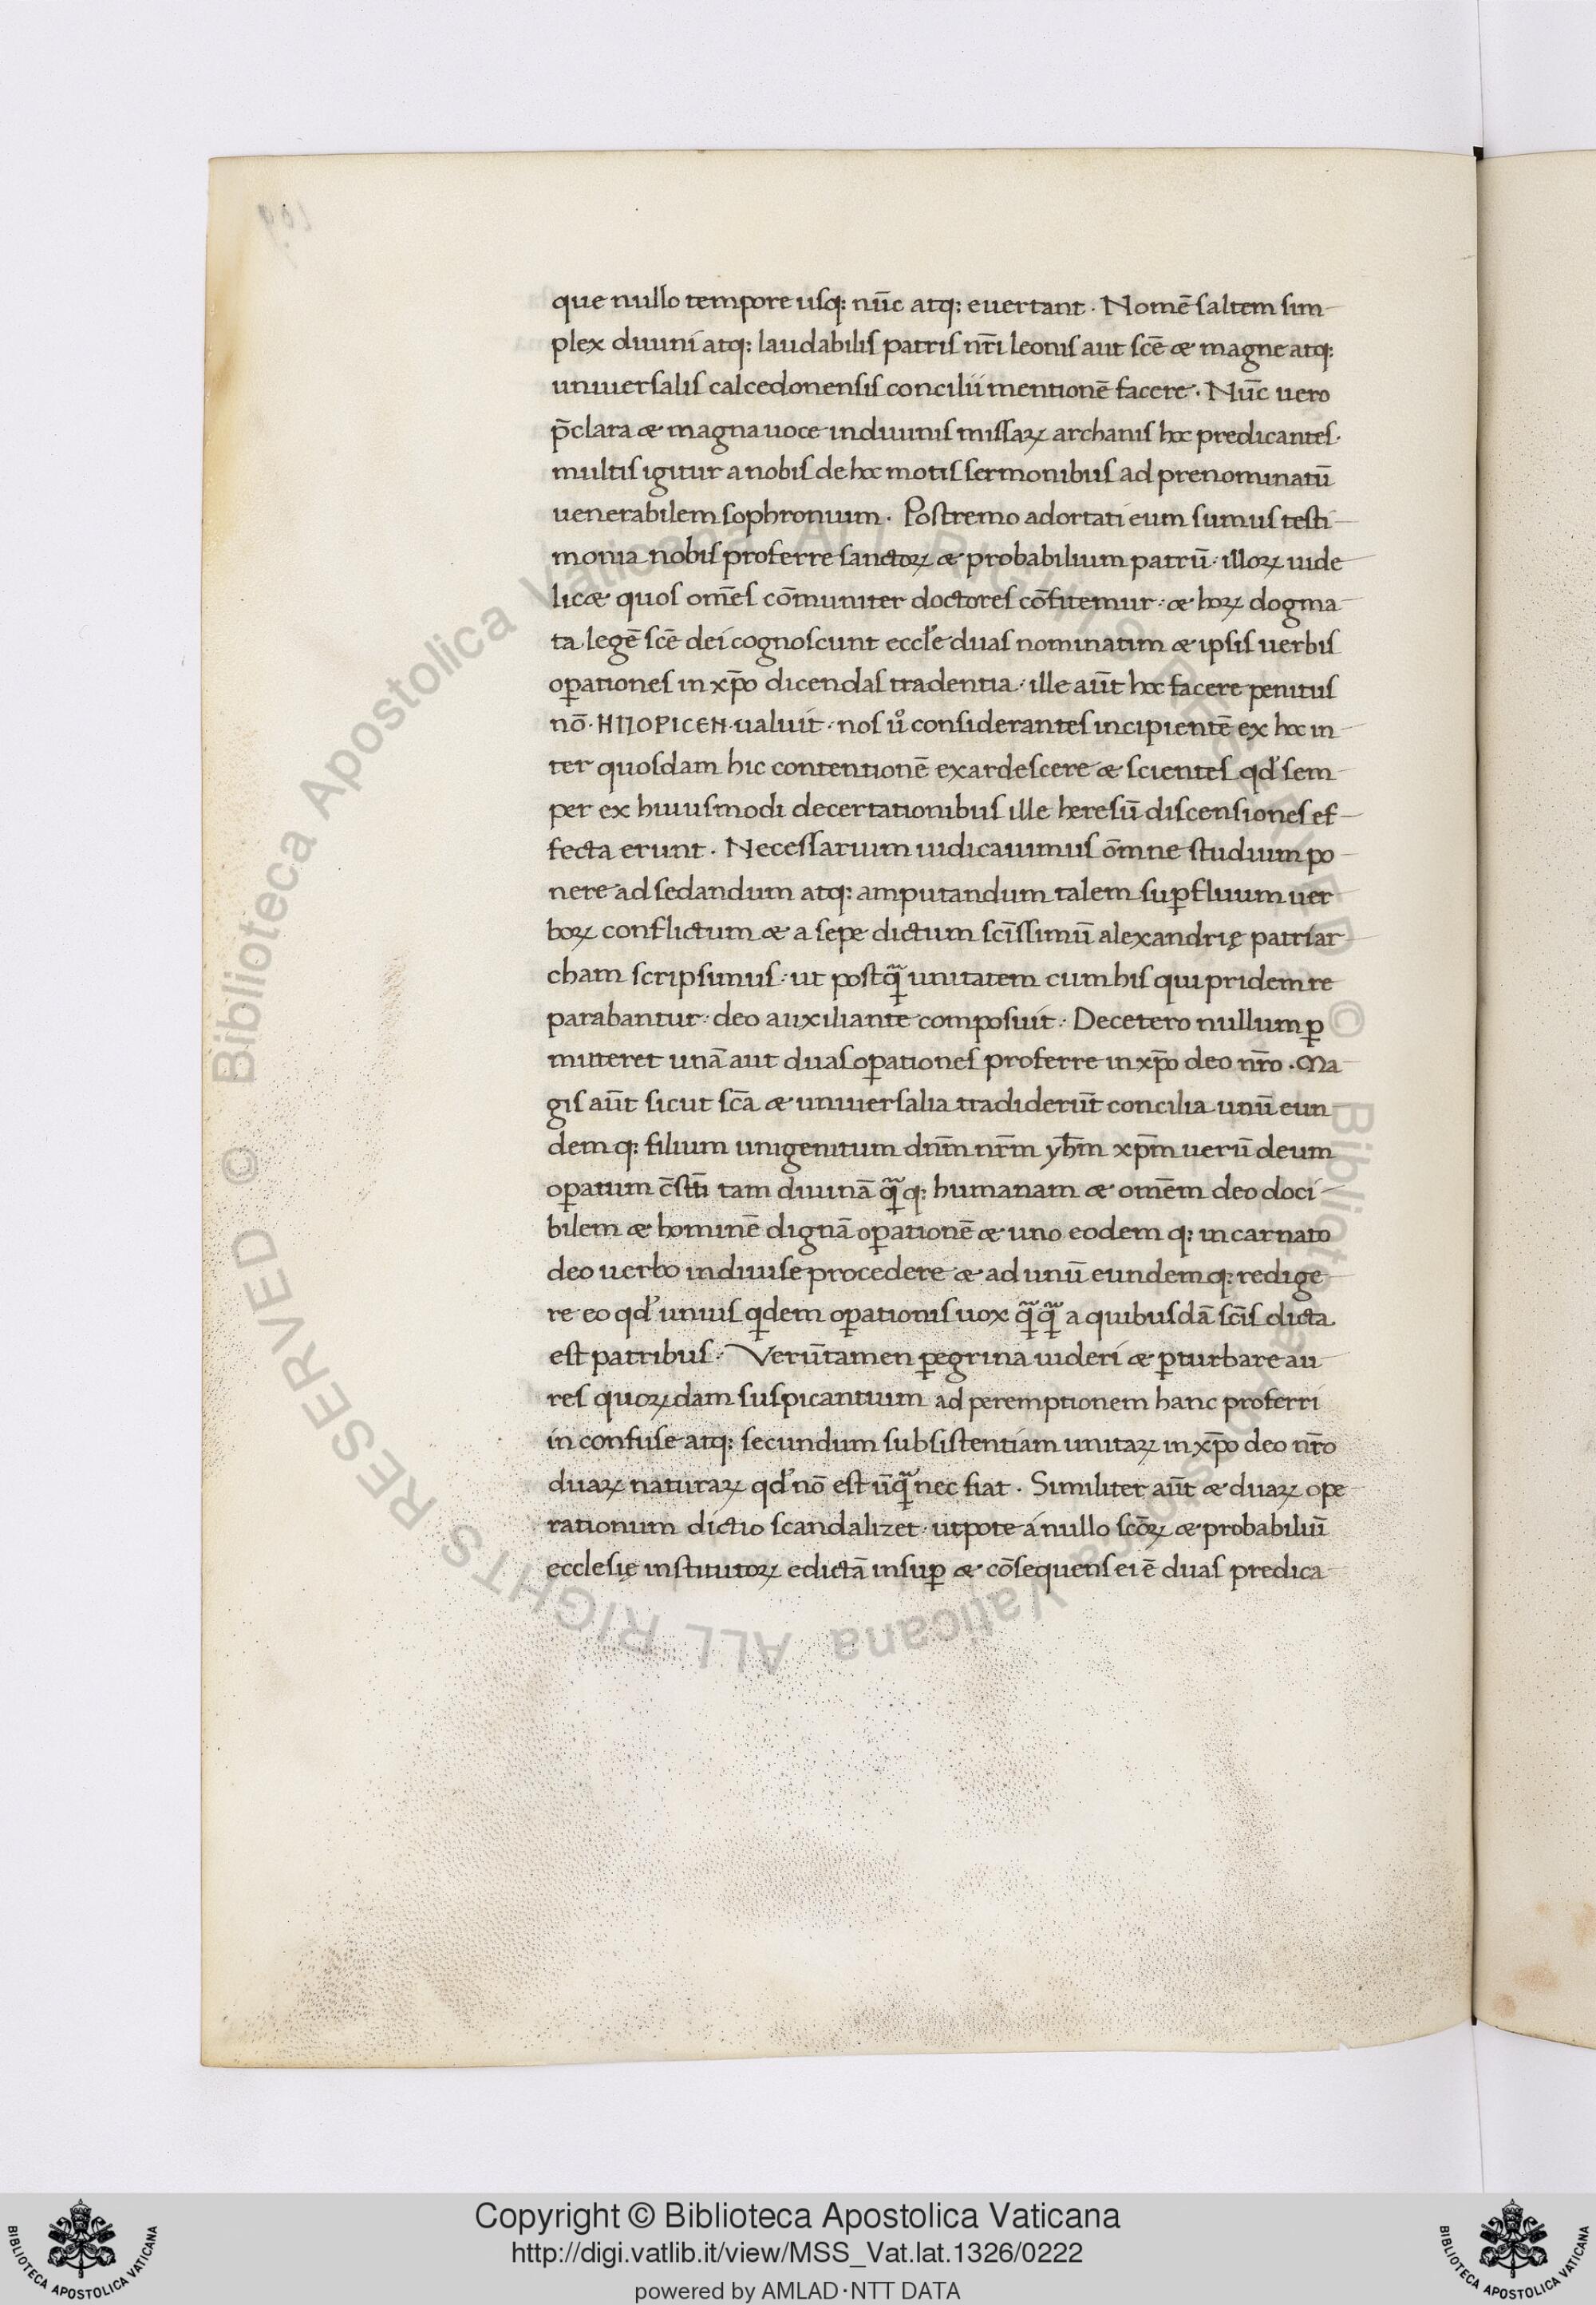 que nullo tempore usq: nūc atq: euertant. Nomē saltem sim
plex diuini atq: laudabilis patris nr̄i leonis aut scē & magne atq:
uniuersalis calcedonensis concilii mentionē facere. Nūc uero
p̄clara & magna uoce in diuinis missaꝝ archanis hoc predicantes.
multis igitur a nobis de hoc motis sermonibus ad prenominatū
uenerabilem sophronium. Postremo adortati eum sumus testi
monia nobis proferre sanctoꝝ & probabilium patrū. illoꝝ uide
lic& quos om̄es cōmuniter doctores cōfitemur. & hoꝝ dogma
ta legē scē dei cognoscunt eccl'e duas nominatim & ipsis uerbis
oꝑationes in xp̄o dicendas tradentia. ille aūt hoc facere penitus
nō. ΗΠΟΡΙCΕΗ. ualuit. nos uͦ considerantes incipientē ex hoc in
ter quosdam hic contentionē exardescere & scientes qd' sem
per ex huiusmodi decertationibus ille heresū discensiones ef
fecta erunt. Necessarium iudicauimus ōmne studium po
nere ad sedandum atq: amputandum talem suꝑfluum uer
boꝝ conflictum & a sepe dictum scīssimū alexandrię patriar
cham scripsimus. ut postqua̅ unitatem cum his qui pridem re
parabantur. deo auxiliante composuit. Decetero nullum ꝑ
mitteret unā aut duas oꝑationes proferre in xp̄o deo nr̄o. Ma
gis aūt sicut scā & uniuersalia tradiderūt concilia unū eun
dem q: filium unigenitum dn̄m nr̄m yh̄m xp̄m uerū deum
oꝑatum c̄stt̄i tam diuinā qua̅ q: humanam & omēm deo doci
bilem & hominē dignā oꝑationē & uno eodem q: incarnato
deo uerbo indiuise procedere & ad unū eundemq: redige
re eo qd' unius qͥdem oꝑationis uox qua̅qua̅ a quibusdā scīs dicta
est patribus. Verūtamen ꝑegrina uideri & ꝑturbare au
res quoꝝdam suspicantium ad peremptionem hanc proferri
in confuse atq: secundum subsistentiam unitaꝝ in xp̄o deo nr̄o
duaꝝ naturaꝝ qd' nō est ūqua̅ nec fiat. Similiter aūt & duaꝝ ope
rationum dictio scandalizet. utpote a nullo scōꝝ & probabiliū
ecclesię institutoꝝ edictā insuꝑ & cōsequens ei ē duas predica
Copyright © Biblioteca Apostolica Vaticana
http://digi.vatlib.it/view/MSS_Vat.lat.1326/0222
powered by AMLAD·NTT DATA
BIBLIOTECA APOSTOLICA VATICANA
BIBLIOTECA APOSTOLICA VATICANA
© Biblioteca Apostolica Vaticana ALL RIGHTS RESERVED © Biblioteca Apostolica Vaticana ALL RIGHTS RESERVED